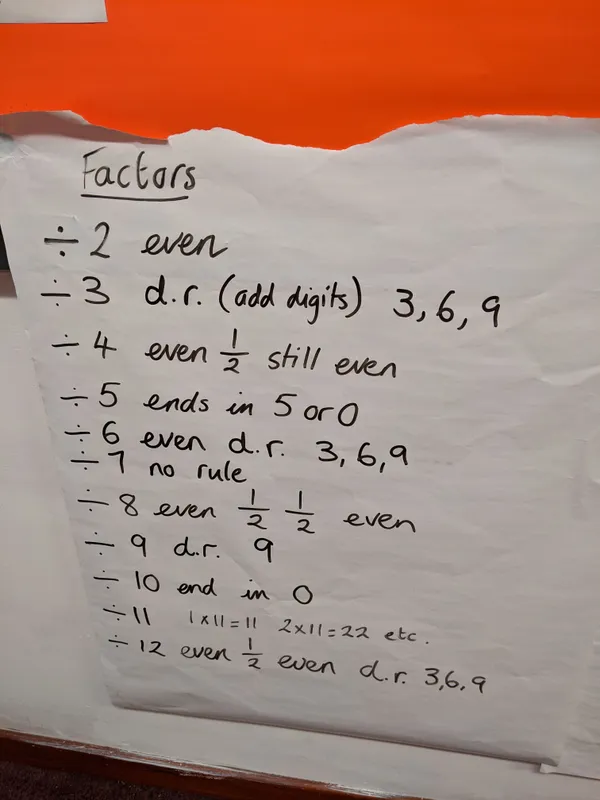 Factors
÷ 2 even
÷ 3 d.r. (add digits) 3, 6, 9
÷ 4 even 1/2 still even
÷ 5 ends in 5 or 0
÷ 6 even d.r. 3, 6, 9
÷ 7 no rule
÷ 8 even 1/2 1/2 even
÷ 9 d.r. 9
÷ 10 end in 0
÷ 11 1 x 11 = 11 2 x 11 = 22 etc.
÷ 12 even 1/2 even d.r. 3, 6, 9